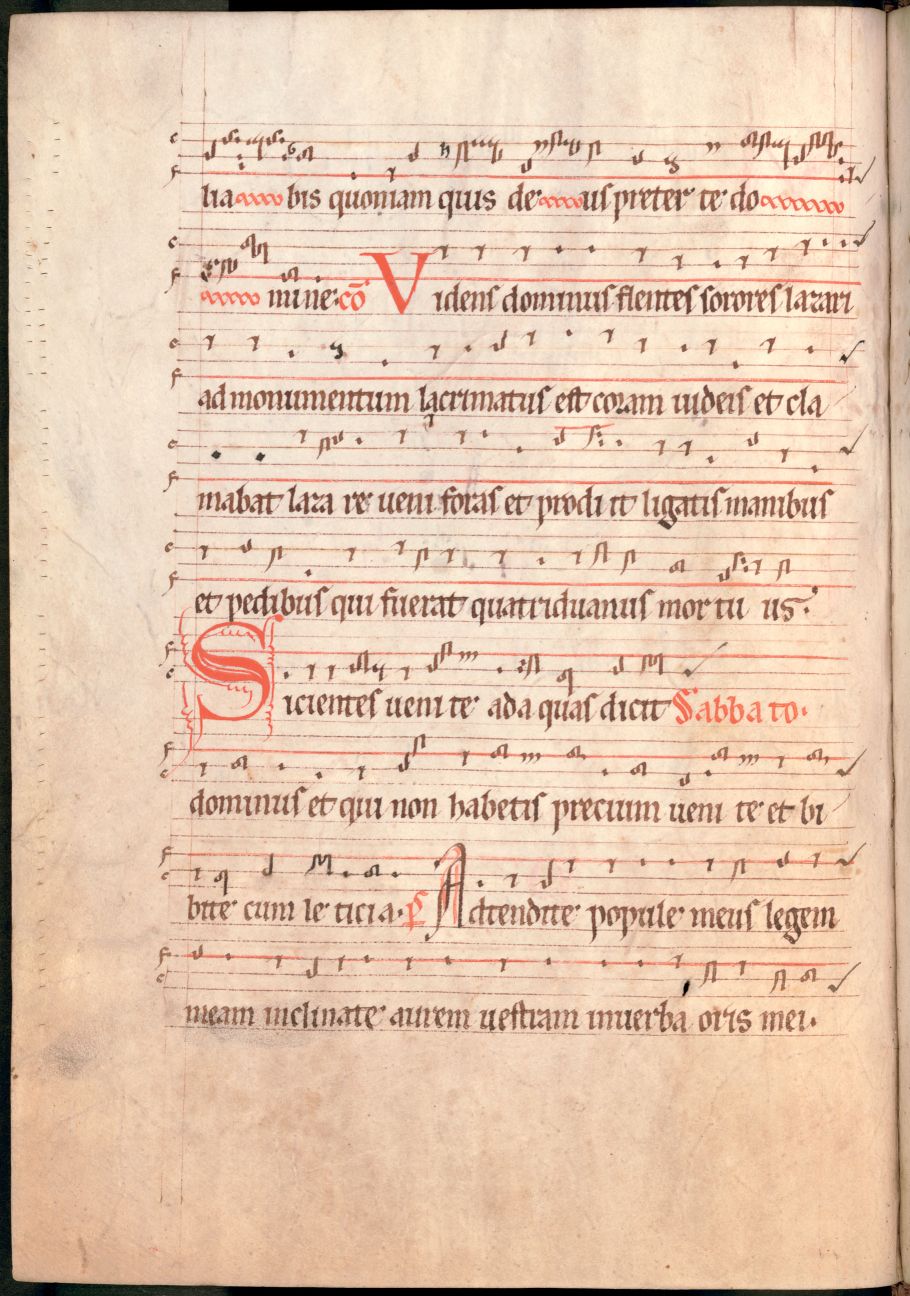 lia bis quoniam quis de us preter te do
mi ne: cō Videns dominus flentes sorores lazari
ad monumentum lacrimatus est coram iudeis et cla
mabat laza re ueni foras et prodi it ligatis manibus
et pedibus qui fuerat quatriduanus mor tu us.
Sicientes ueni te ad a quas dicit Sabba to.
dominus et qui non habetis precium ueni te et bi
bite cum le ticia. ps Adtendite popule meus legem
meam inclinate aurem uestram in uerba oris mei.